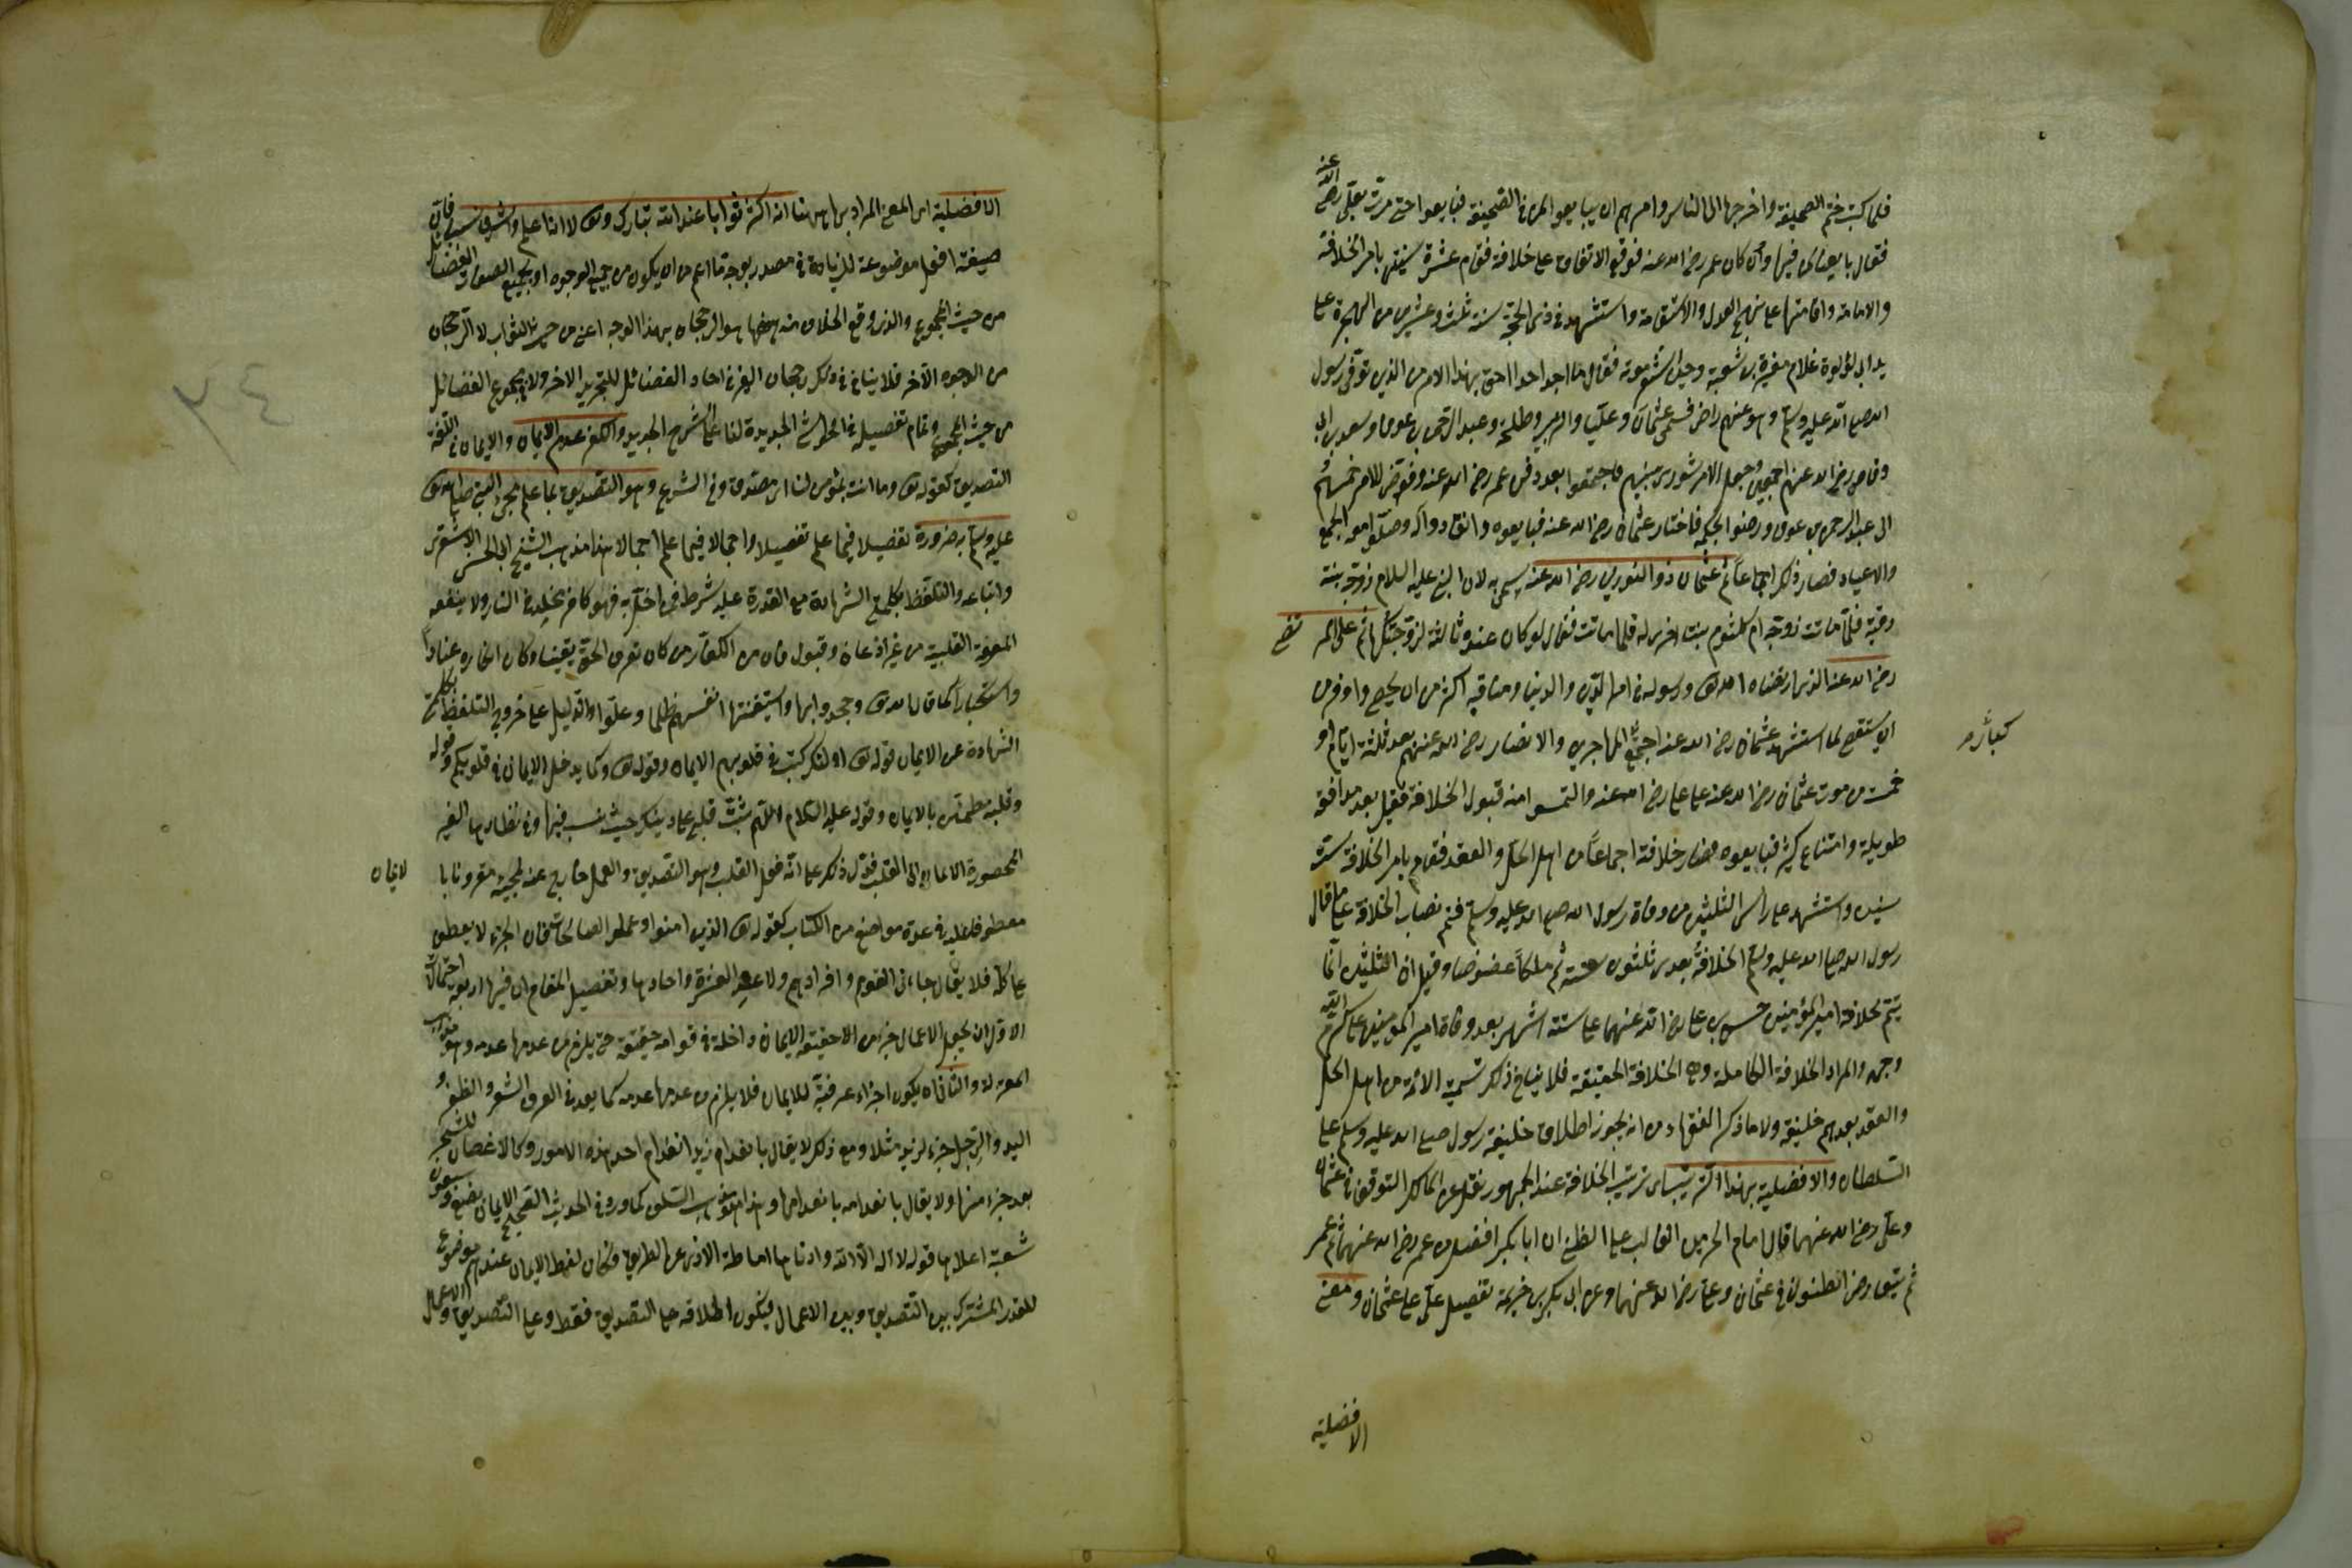 فلما كتب ختم الصحيفة واخرجها الى الناس وامرهم ان يبايعوا لمن في الصحيفة فبايعوا حتى مرت بعلي رضي الله عنه
فقال بايعنا لمن فيها وان كان عمر رضي الله عنه فوقع الاتفاق على خلافته فقام عشر سنين بامر الخلافة
والامامة واقامتها على نهج العدل والاستقامة واستشهد في ذي الحجة سنة ثلث وعشرين من الهجرة على
يد ابي لؤلؤة غلام مغيرة بن شعبة وحين استشعر موته فقال ما اجد احدا احق بهذا الامر من الذين توفي رسول
الله صلى الله عليه وسلم وهو عنهم راض فسمى عثمان وعليا والزبير وطلحة وعبد الرحمن بن عوف وسعد بن ابي
وقاص رضي الله عنهم اجمعين وجعل الامر شورى بينهم فاجتمعوا بعد دفن عمر رضي الله عنه وفوض الامر خمستهم
الى عبد الرحمن بن عوف ورضوا بحكمه فاختار عثمان رضي الله عنه فبايعوه وانقادوا له وصلوا معه الجمع
والاعياد فصار ذلك اجماعا ثم عثمان ذو النورين رضي الله عنه سمي به لان النبي عليه السلام زوجه بنته
رقية فلما ماتت زوجه ام كلثوم بنت اخرى له فلما ماتت فقال لو كان عندي ثالثة لزوجتكها ثم على المرتضى
رضي الله عنه الذي ارتضاه الله تعالى ورسوله في امر الدين والدنيا ومناقبه اكثر من ان يحصى واوفر من
ان يستقصى لما استشهد عثمان رضي الله عنه اجتمع كبار المهاجرين والانصار رضي الله عنهم بعد ثلثة ايام او
خمسة من موت عثمان رضي الله عنه على علي رضي الله عنه والتمسوا منه قبول الخلافة فقبل بعد مدافعة
طويلة وامتناع كثير فبايعوه فصار خلافته اجماعا من اهل الحل والعقد فقام بامر الخلافة ست
سنين واستشهد على رأس الثلثين من وفاة رسول الله صلى الله عليه وسلم فتم نصاب الخلافة على ما قال
رسول الله صلى الله عليه وسلم الخلافة بعدي ثلثون سنة ثم ملكا عضوضا وقيل ان الثلثين انما
يتم بخلافة امير المؤمنين حسن بن علي رضي الله عنهما ستة اشهر بعد وفاة امير المؤمنين علي كرم الله
وجهه والمراد الخلافة الكاملة وهي الخلافة الحقيقة فلا ينافي ذلك تسمية الائمة من اهل الحل
والعقد بعدهم خليفة ولا ما ذكر الفقهاء من انه يجوز اطلاق خليفة رسول صلى الله عليه وسلم على
السلطان والافضلية بهذا الترتيب اي ترتيب الخلافة عند الجمهور نقل عن مالك التوقف في عثمان
وعلي رضي الله عنهما قال امام الحرمين الغالب على الظن ان ابا بكر افضل من عمر رضي الله عنهم ثم عمر
ثم يتعارض الظنون في عثمان وعلي رضي الله عنهما وعن ابي بكر بن خزيمة تفضيل علي على عثمان ومعنى
الافضلية
الافضلية اي المعنى المراد بها ههنا انه اكثر ثوابا عند الله تبارك وتعالى لا انه اعلم واشرف نسبا فان
صيغة افعل موضوعة للزيادة في مصدر بوجه ما اعم من ان يكون من جميع الوجوه او بجميع الصفات والفضائل
من حيث المجموع والذي وقع الخلاف منه ههنا هو الرجحان بهذا الوجه اعني من حيث الثواب لا الرجحان
من الوجوه الأخر فلا ينافي ذلك رجحان الغير في احاد الفضائل الاخر ولا في مجموع الفضائل
من حيث المجموع وتمام تفصيله في الحواشي الجديدة لنا على الشرح الجديد والكفر عدم الايمان والايمان في اللغة
التصديق كقوله تعالى وما انت بمؤمن لنا اي مصدق وفي الشرع وهو التصديق بما علم مجئ النبي صلى الله تعالى
عليه وسلم به ضرورة تفصيلا فيما علم تفصيلا واجمالا فيما علم اجمالا هذا مذهب الشيخ ابي الحسن الاشعري
واتباعه والتلفظ بكلمتي الشهادة مع القدرة عليه شرط فمن اخل به فهو كافر مخلد في النار ولا ينفعه
المعرفة القلبية من غير اذعان وقبول فان من الكفار من كان يعرف الحق يقينا وكان انكاره عنادا
واستكبارا كما قال الله تعالى وجحدوا بها واستيقنتها انفسهم ظلما وعلوا والدليل على خروج التلفظ بكلمتي
الشهادة عن الايمان قوله تعالى اولئك كتب في قلوبهم الايمان وقوله تعالى ولما يدخل الايمان في قلوبكم وقوله
وقلبه مطمئن بالايمان وقوله عليه السلام اللهم ثبت قلبي على دينك حيث نسب فيها وفي نظائرها الغير
المحصورة الايمان الى القلب فدل ذلك على انه فعل القلب وهو التصديق والعمل خارج عنه لمجيئه مقرونا بالايمان
معطوفا عليه في عدة مواضع من الكتاب كقوله تعالى الذين امنوا وعملوا الصالحات فان الجزء لا يعطف
على كله فلا يقال جاءني القوم وافرادهم ولا عندي العشرة واحادها وتفصيل المقام ان فيها اربع احتمالات
الاول ان يجعل الاعمال جزء من حقيقة الايمان داخلة في قوام حقيقته حتى يلزم من عدمها عدمه وهو مذهب
المعتزلة والثاني ان يكون اجزاء عرفية للايمان فلا يلزم من عدمها عدمه كما يعد في العرف الشعر والظفر و
اليد والرجل جزء لزيد مثلا ومع ذلك لا يقال بانعدام زيد انعدام احد هذه الامور وكالاغصان للشجر
يعد جزء منها ولا يقال بانعدامه بانعدامها وهذا مذهب السلف كما ورد في الحديث الصحيح الايمان بضع وسبعون
شعبة اعلاها قول لا اله الا الله وادناها اماطة الاذى عن الطريق فكان لفظ الايمان عندهم موضوع
للقدر المشترك بين التصديق وبين الاعمال فيكون اطلاقه على التصديق فقط وعلى التصديق والاعمال
٢٤